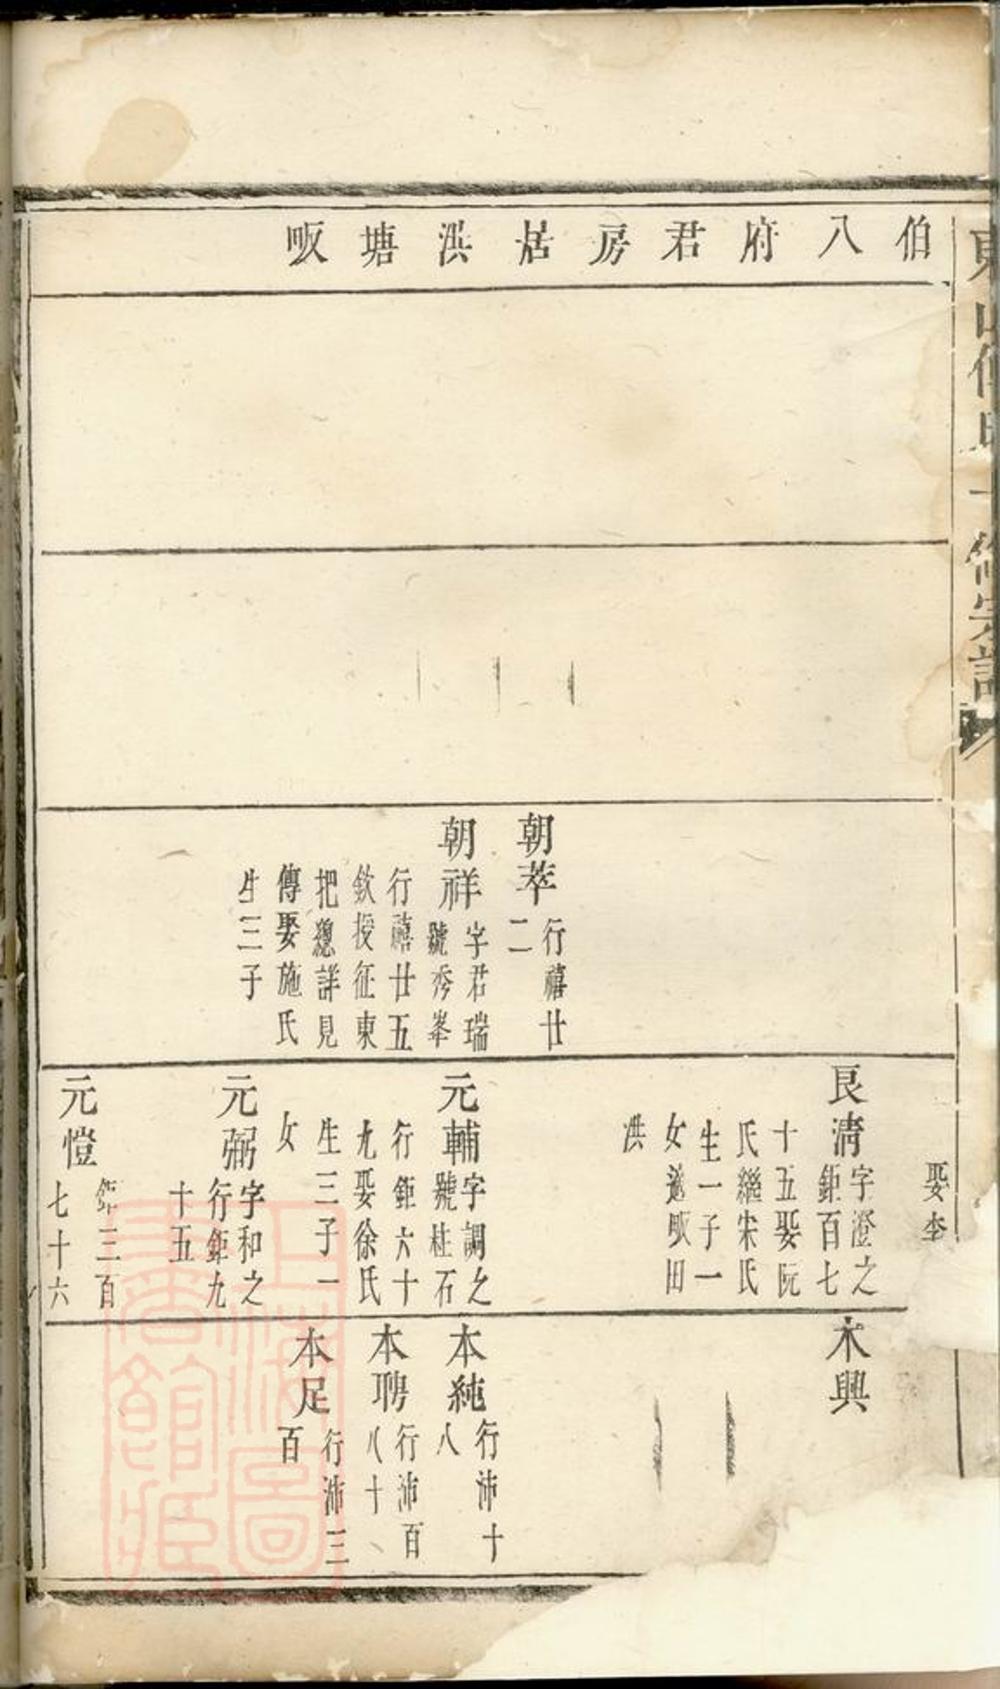 伯八府君房居洪塘畈
朝萃
行禧廿
二
朝祥
字君瑞
號秀峯
行禧廿五
欽授征東
把總詳見
傳娶施氏
生三子
娶李
良清
字澄之
鉅百七
十五娶阮
氏繼宋氏
生一子一
女適畈田
洪
元輔
字調之
號柱石
行鉅六十
九娶徐氏
生三子一
女
元弼
字和之
行鉅九
十五
元愷
鉅三百
七十六
永興
本純
行沛十
八
本聘
行沛百
八十
本足
行沛三
百
上海圖書館藏